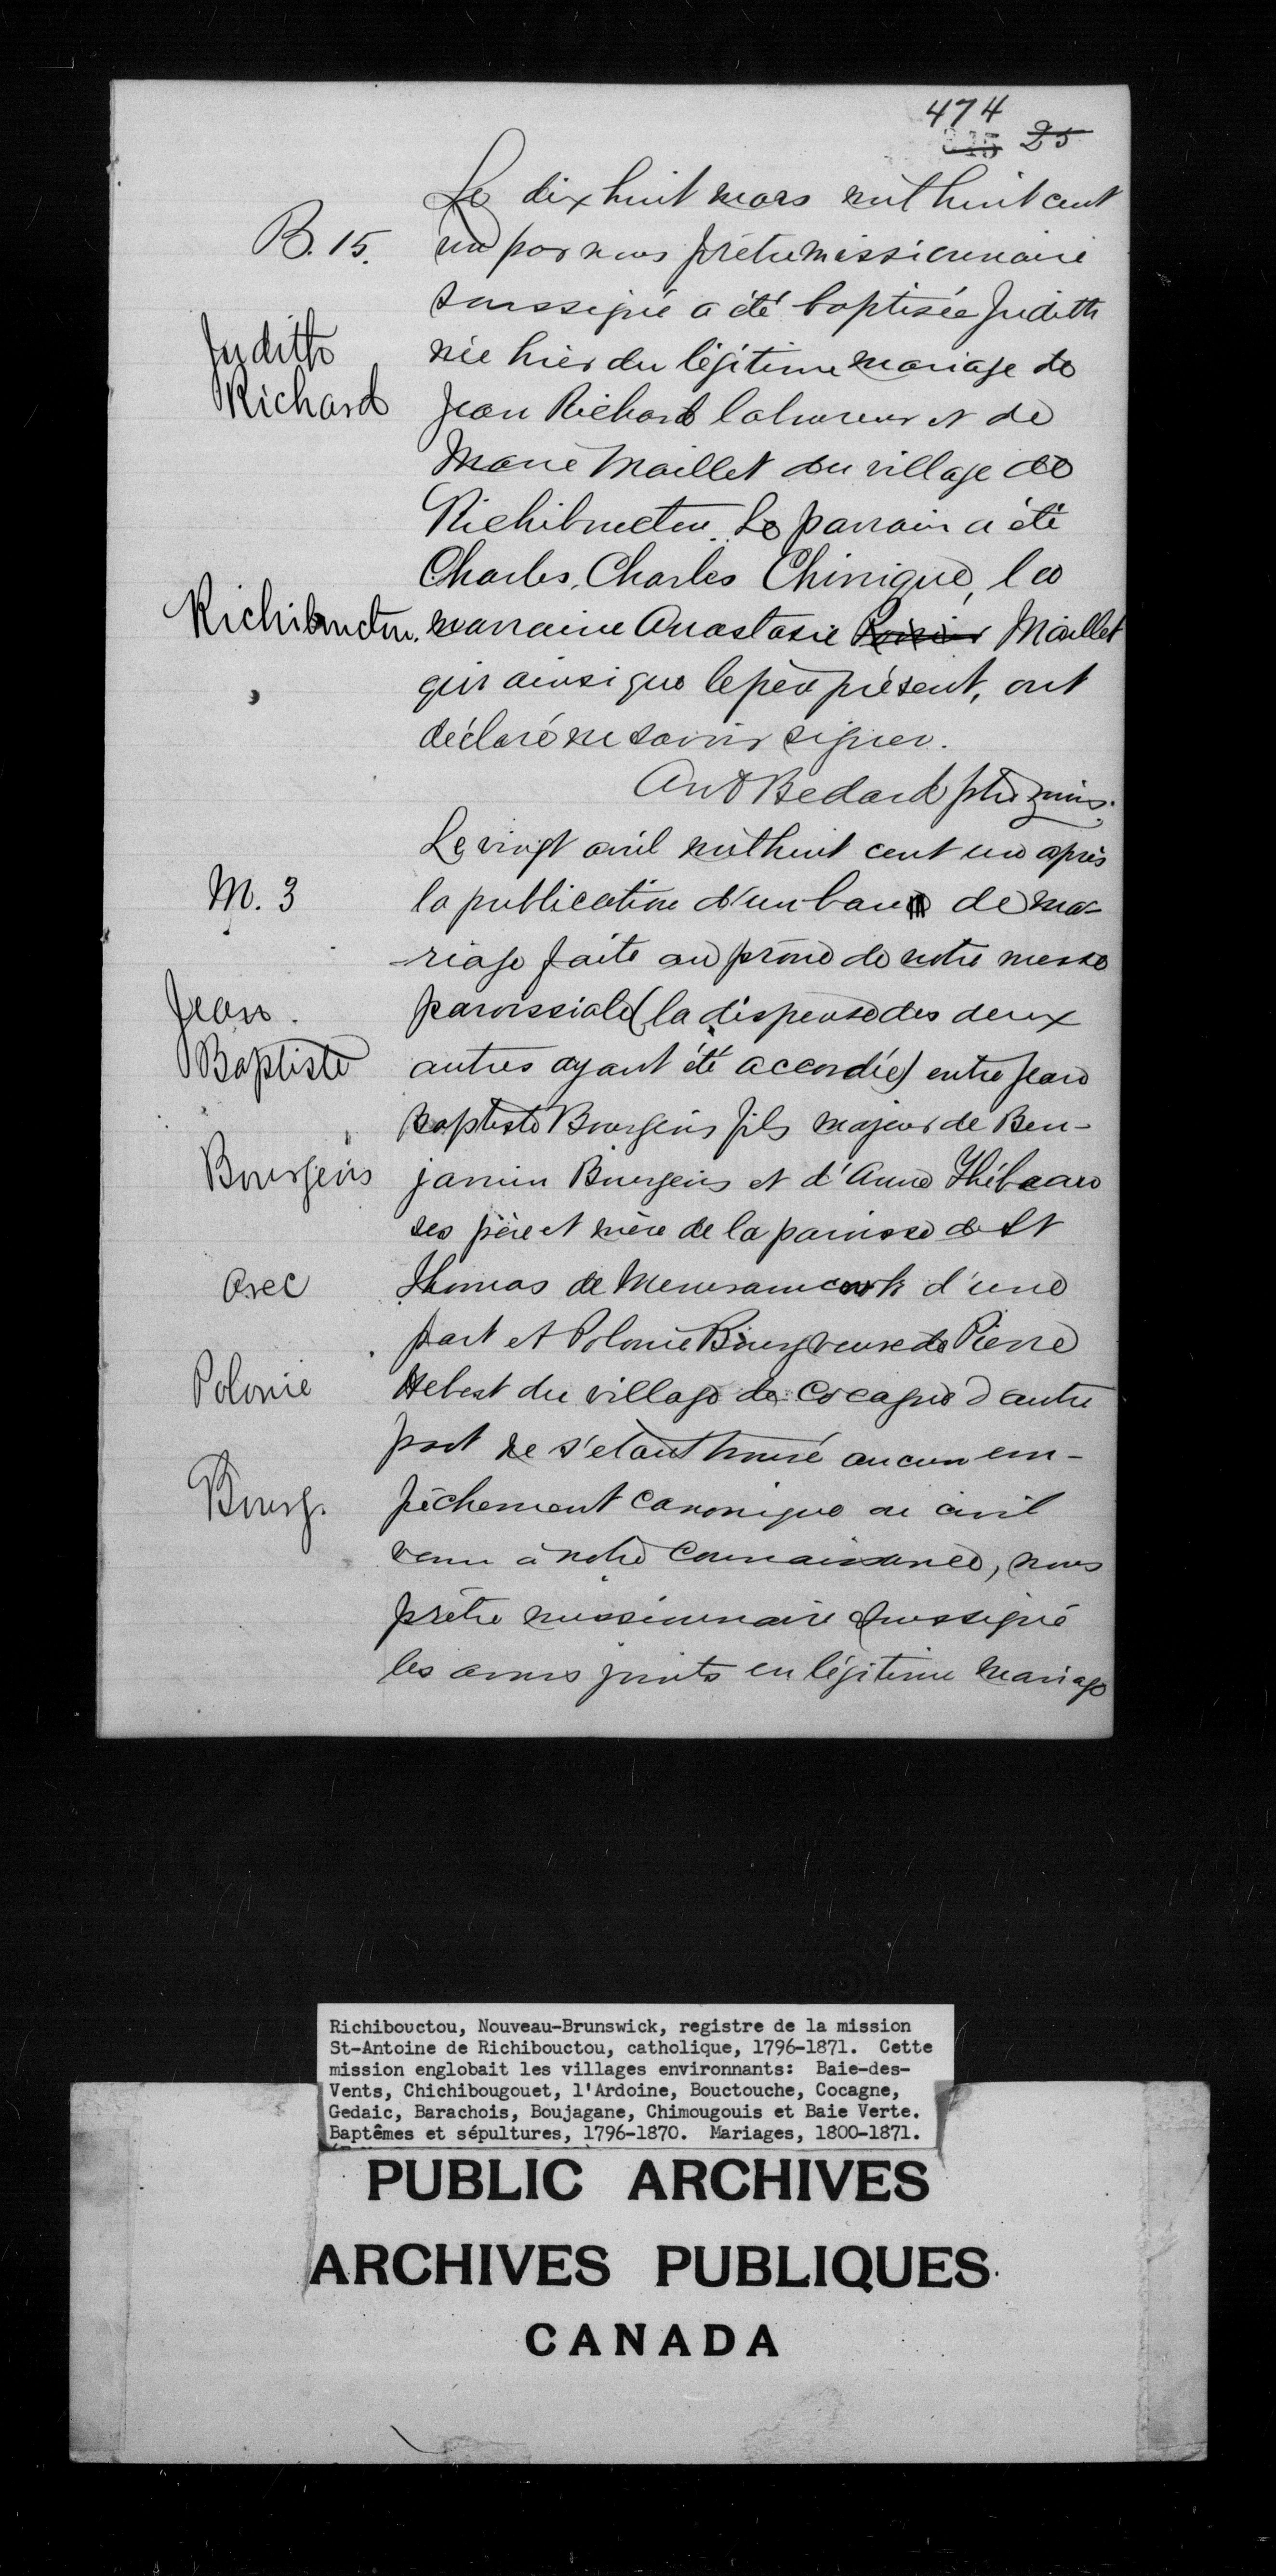 474
25
Le dix huit mars mil huit cent
B. 15.
un par nous prêtre missionnaire
soussigné a été baptisée Judith
Judith
née hier du légitime mariage de
Richard
Jean Richard laboureur et de
Marie Maillet du village de
Richibuctou. Le parrain a été
Charles, Charles Chinique, la
Richibuctou.
marraine Anastasie Poirier Maillet
qui ainsi que le père présent, ont
déclaré ne savoir signer.
Ant Bedard ptre miss.
Le vingt avril mil huit cent un après
M. 3
la publication d'un ban de ma-
riage faite au prône de notre messe
Jean
paroissiale (la dispense des deux
Baptiste
autres ayant été accordée) entre Jean
Baptiste Bourgeois fils majeur de Ben-
Bourgeois
jamin Bourgeois et d'Anne Thébeau
ses père et mère de la paroisse de St
avec
Thomas de Memramcook d'une
part et Polonie Bourg veuve de Pierre
Polonie
Hebert du village de Cocagne d'autre
part ne s'étant trouvé aucun em-
Bourg.
pêchement canonique ou civil
venu à notre connaissance, nous
prêtre missionnaire soussigné
les avons joints en légitime mariage
Richibouctou, Nouveau-Brunswick, registre de la mission
St-Antoine de Richibouctou, catholique, 1796-1871. Cette
mission englobait les villages environnants: Baie-des-
Vents, Chichibougouet, l'Ardoine, Bouctouche, Cocagne,
Gedaic, Barachois, Boujagane, Chimougouis et Baie Verte.
Baptêmes et sépultures, 1796-1870. Mariages, 1800-1871.
PUBLIC ARCHIVES
ARCHIVES PUBLIQUES
CANADA